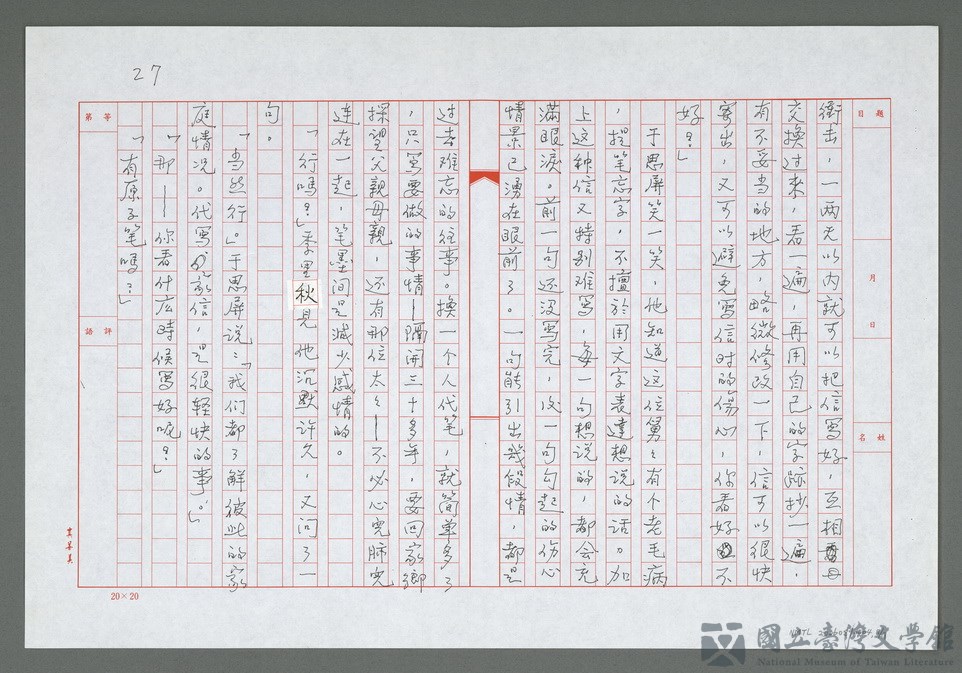 27
題目
月
日
姓名
衝击，一两天以内就可以把信写好，互相
交換过来，看一遍，再用自己的字跡抄一遍，
有不妥当的地方，略微修改一下，信可以很快
寄出，又可以避免写信时的傷心，你看好不
好？」
于思屏笑一笑，他知道这位舅々有个老毛病
，提笔忘字，不擅於用文字表達想说的话。加
上这种信又特别难写，每一句想说的，都会充
滿眼淚。前一句还没写完，後一句勾起的伤心
情景已湧在眼前了。一句能引出幾段情，都是
过去难忘的往事。換一个人代笔，就簡单多了
，只写要做的事情—隔开三十多年，要回家鄉
探望父親母親，还有那位太々—不必心完肺完
连在一起，笔墨间是減少感情的。
「行嗎？」季里秋見他沉默许久，又问了一
句。
「当然行」。于思屏说：「我们都了解彼此的家
庭情况。代写家信，是很轻快的事。」
「那——你看什庅時候写好呢？」
「有原子笔嗎？」
等第
評語
20×20
國立臺灣文学館
National Museum of Taiwan Literature